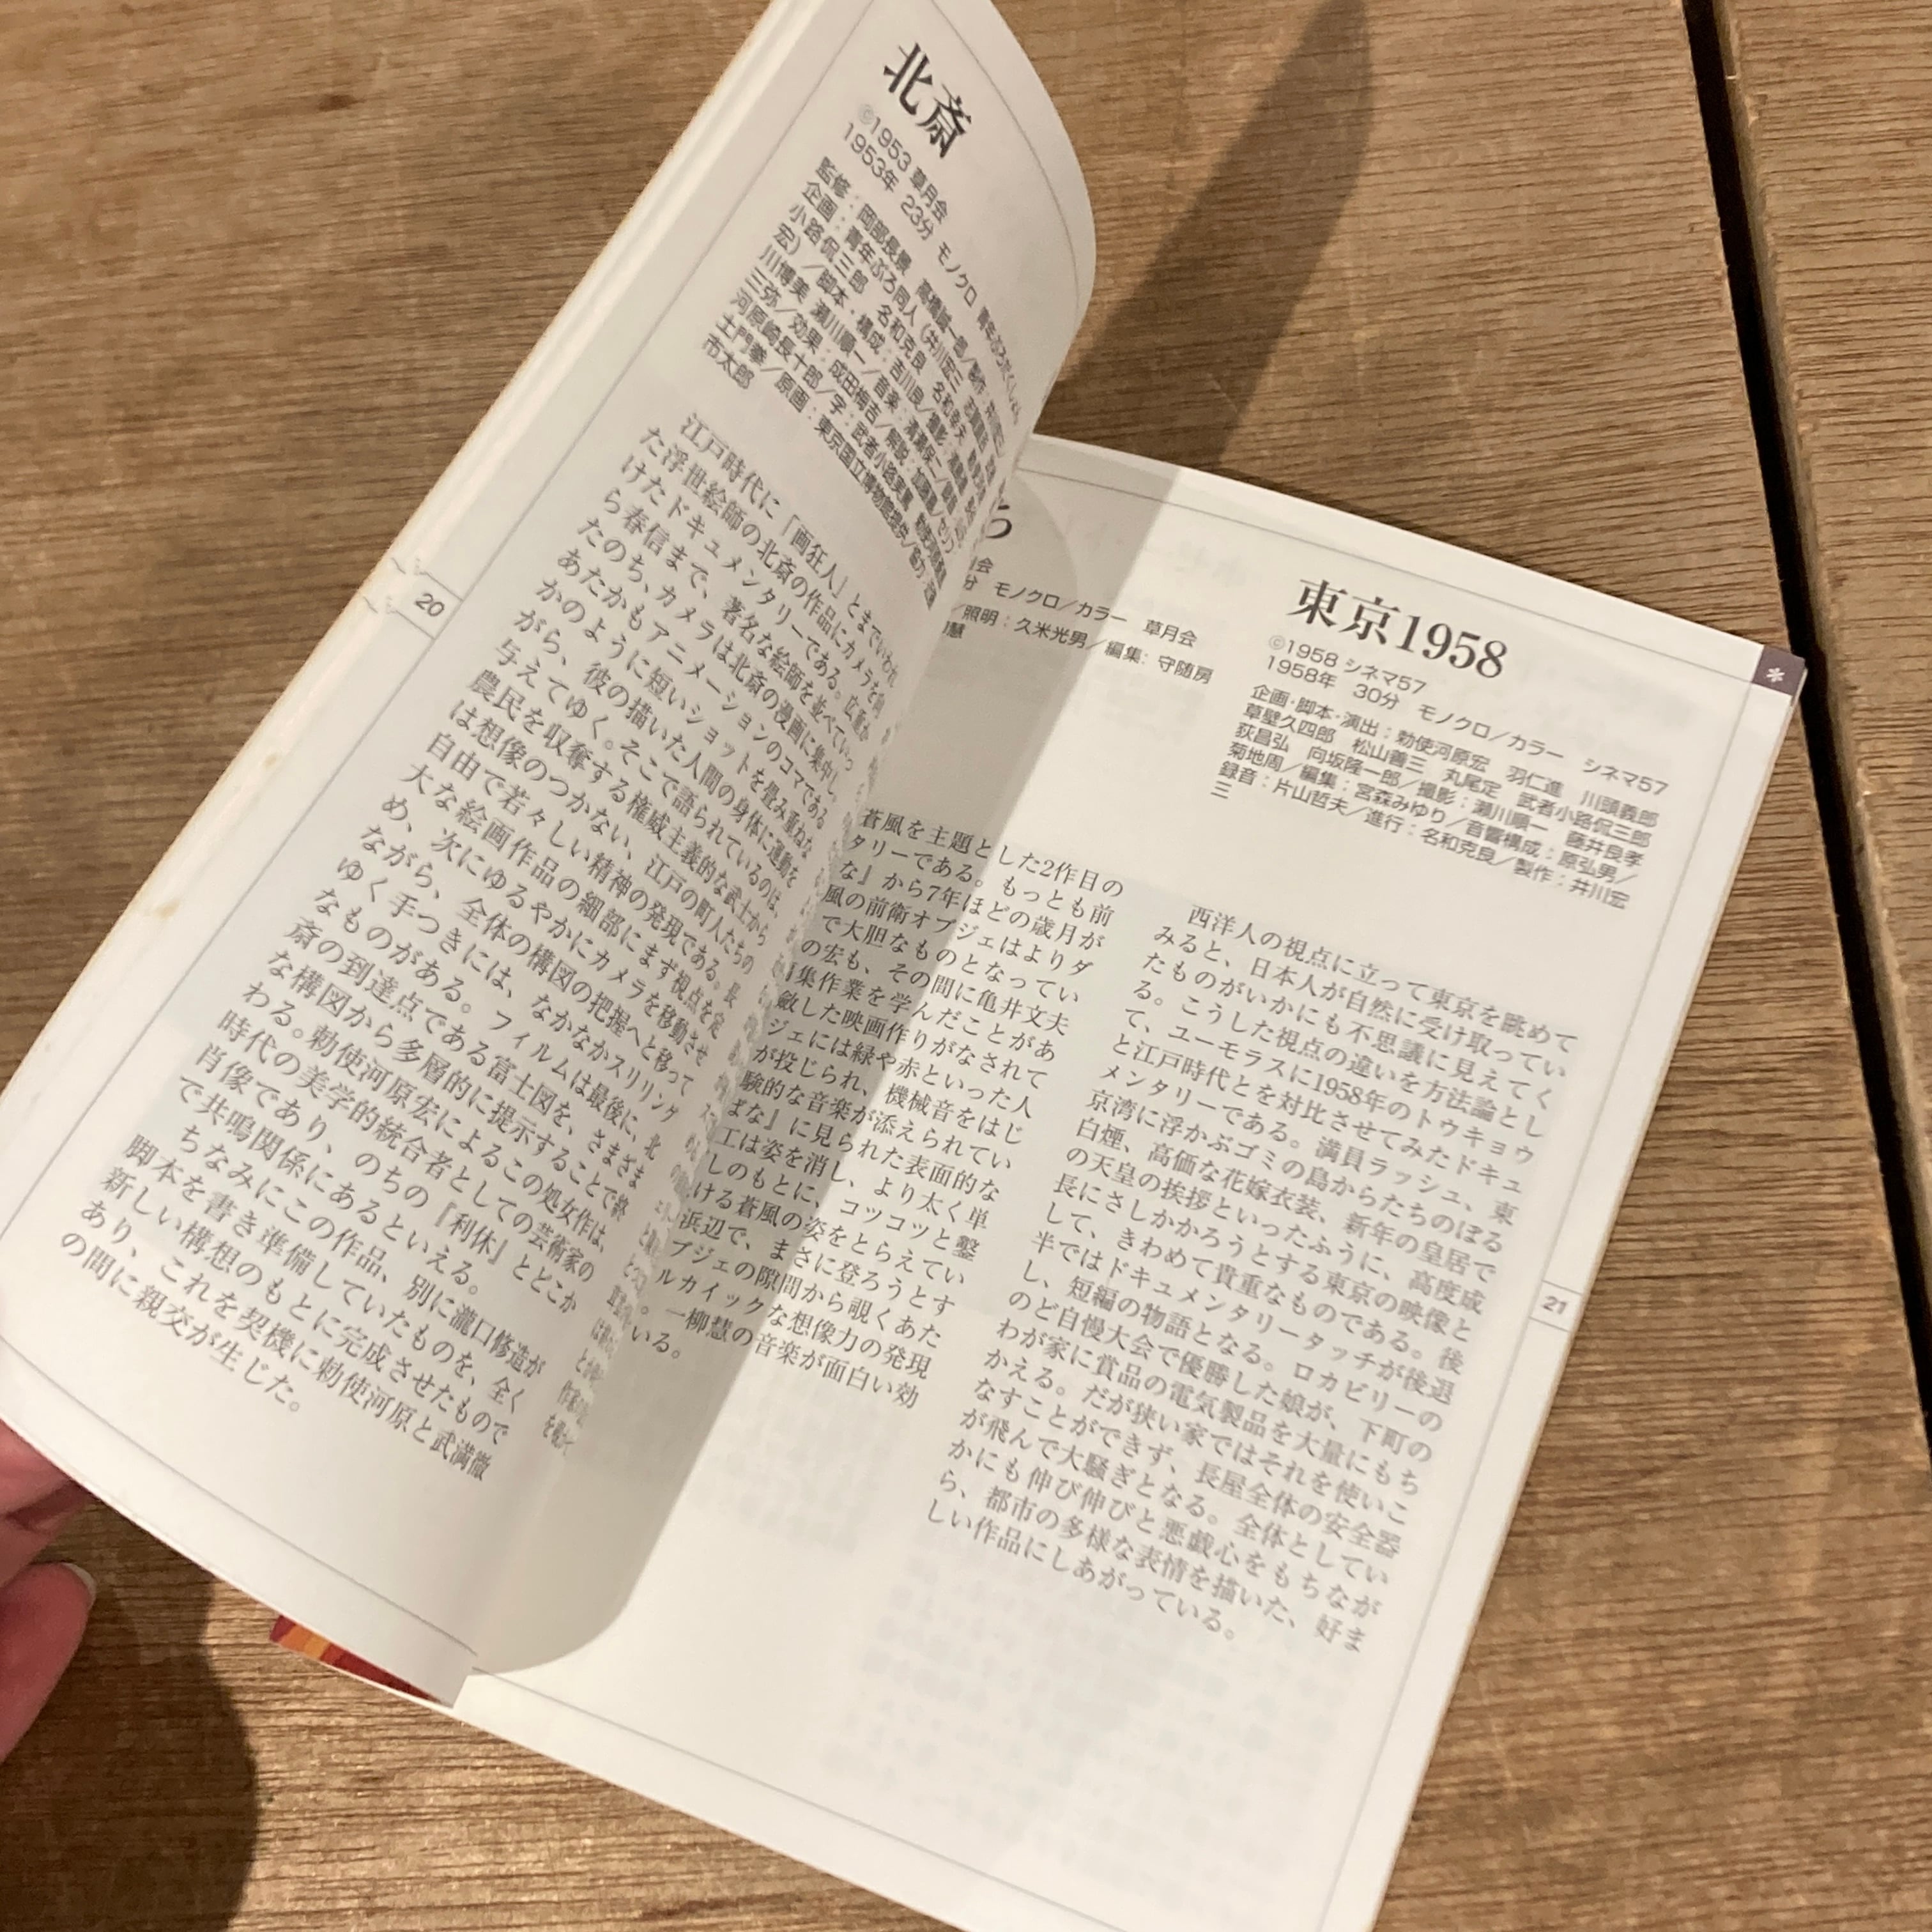 北斎
©1953 草月会
1953年 23分 モノクロ 青年ぷろだくしょん
監修:岡部長景 高橋誠一郎/製作
企画:青年ぷろ同人(井川宏三
小路侃三郎 名和克良
宏)/脚本・構成:吉川良/撮影
川博美 瀬川順一/音楽:清瀬保二
三弥/効果:成田梅吉/解説:加藤嘉/
河原崎長十郎/字:武者小路実篤
土門拳/原画:東京国立博物館提供/協力
市太郎
江戸時代に「画狂人」とまでいわれ
た浮世絵師の北斎の作品にカメラを向
けたドキュメンタリーである。広重か
ら春信まで、著名な絵師を並べていっ
たのち、カメラは北斎の漫画に集中し、
あたかもアニメーションのコマである
かのように短いショットを畳み重ねな
がら、彼の描いた人間の身体に運動を
与えてゆく。そこで語られているのは、
農民を収奪する権威主義的な武士から
は想像のつかない、江戸の町人たちの
自由で若々しい精神の発現である。長
大な絵画作品の細部にまず視点を定
め、次にゆるやかにカメラを移動させ
ながら、全体の構図の把握へと移って
ゆく手つきには、なかなかスリリング
なものがある。フィルムは最後に、北
斎の到達点である富士図を、さまざま
な構図から多層的に提示することで終
わる。勅使河原宏によるこの処女作は、
時代の美学的統合者としての芸術家の
肖像であり、のちの『利休』とどこか
で共鳴関係にあるといえる。
ちなみにこの作品、別に瀧口修造が
脚本を書き準備していたものを、全く
新しい構想のもとに完成させたもので
あり、これを契機に勅使河原と武満徹
の間に親交が生じた。
20
会
分 モノクロ/カラー 草月会
/照明:久米光男/編集:守随房
慧
蒼風を主題とした2作目の
タリーである。もっとも前
な』から7年ほどの歳月が
風の前衛オブジェはよりダ
で大胆なものとなってい
の宏も、その間に亀井文夫
集作業を学んだことがあ
敏した映画作りがなされて
ジェには緑や赤といった人
が投じられ、機械音をはじ
験的な音楽が添えられてい
ばな』に見られた表面的な
工は姿を消し、より太く単
しのもとに、コツコツと鑿
ける蒼風の姿をとらえてい
浜辺で、まさに登ろうとす
ブジェの隙間から覗くあた
ルカイックな想像力の発現
一柳慧の音楽が面白い効
いる。
東京1958
©1958 シネマ57
1958年 30分 モノクロ/カラー シネマ57
企画・脚本・演出:勅使河原宏 羽仁進 川頭義郎
草壁久四郎 松山善三 丸尾定 武者小路侃三郎
荻昌弘 向坂隆一郎/撮影:瀬川順一 藤井良孝
菊地周/編集:宮森みゆり/音響構成:原弘男/
録音:片山哲夫/進行:名和克良/製作:井川宏
三
西洋人の視点に立って東京を眺めて
みると、日本人が自然に受け取ってい
たものがいかにも不思議に見えてく
る。こうした視点の違いを方法論とし
て、ユーモラスに1958年のトウキョウ
と江戸時代とを対比させてみたドキュ
メンタリーである。満員ラッシュ、東
京湾に浮かぶゴミの島からたちのぼる
白煙、高価な花嫁衣装、新年の皇居で
の天皇の挨拶といったふうに、高度成
長にさしかかろうとする東京の映像と
して、きわめて貴重なものである。後
半ではドキュメンタリータッチが後退
し、短編の物語となる。ロカビリーの
のど自慢大会で優勝した娘が、下町の
わが家に賞品の電気製品を大量にもち
かえる。だが狭い家ではそれを使いこ
なすことができず、長屋全体の安全器
が飛んで大騒ぎとなる。全体としてい
かにも伸び伸びと悪戯心をもちなが
ら、都市の多様な表情を描いた、好ま
しい作品にしあがっている。
21